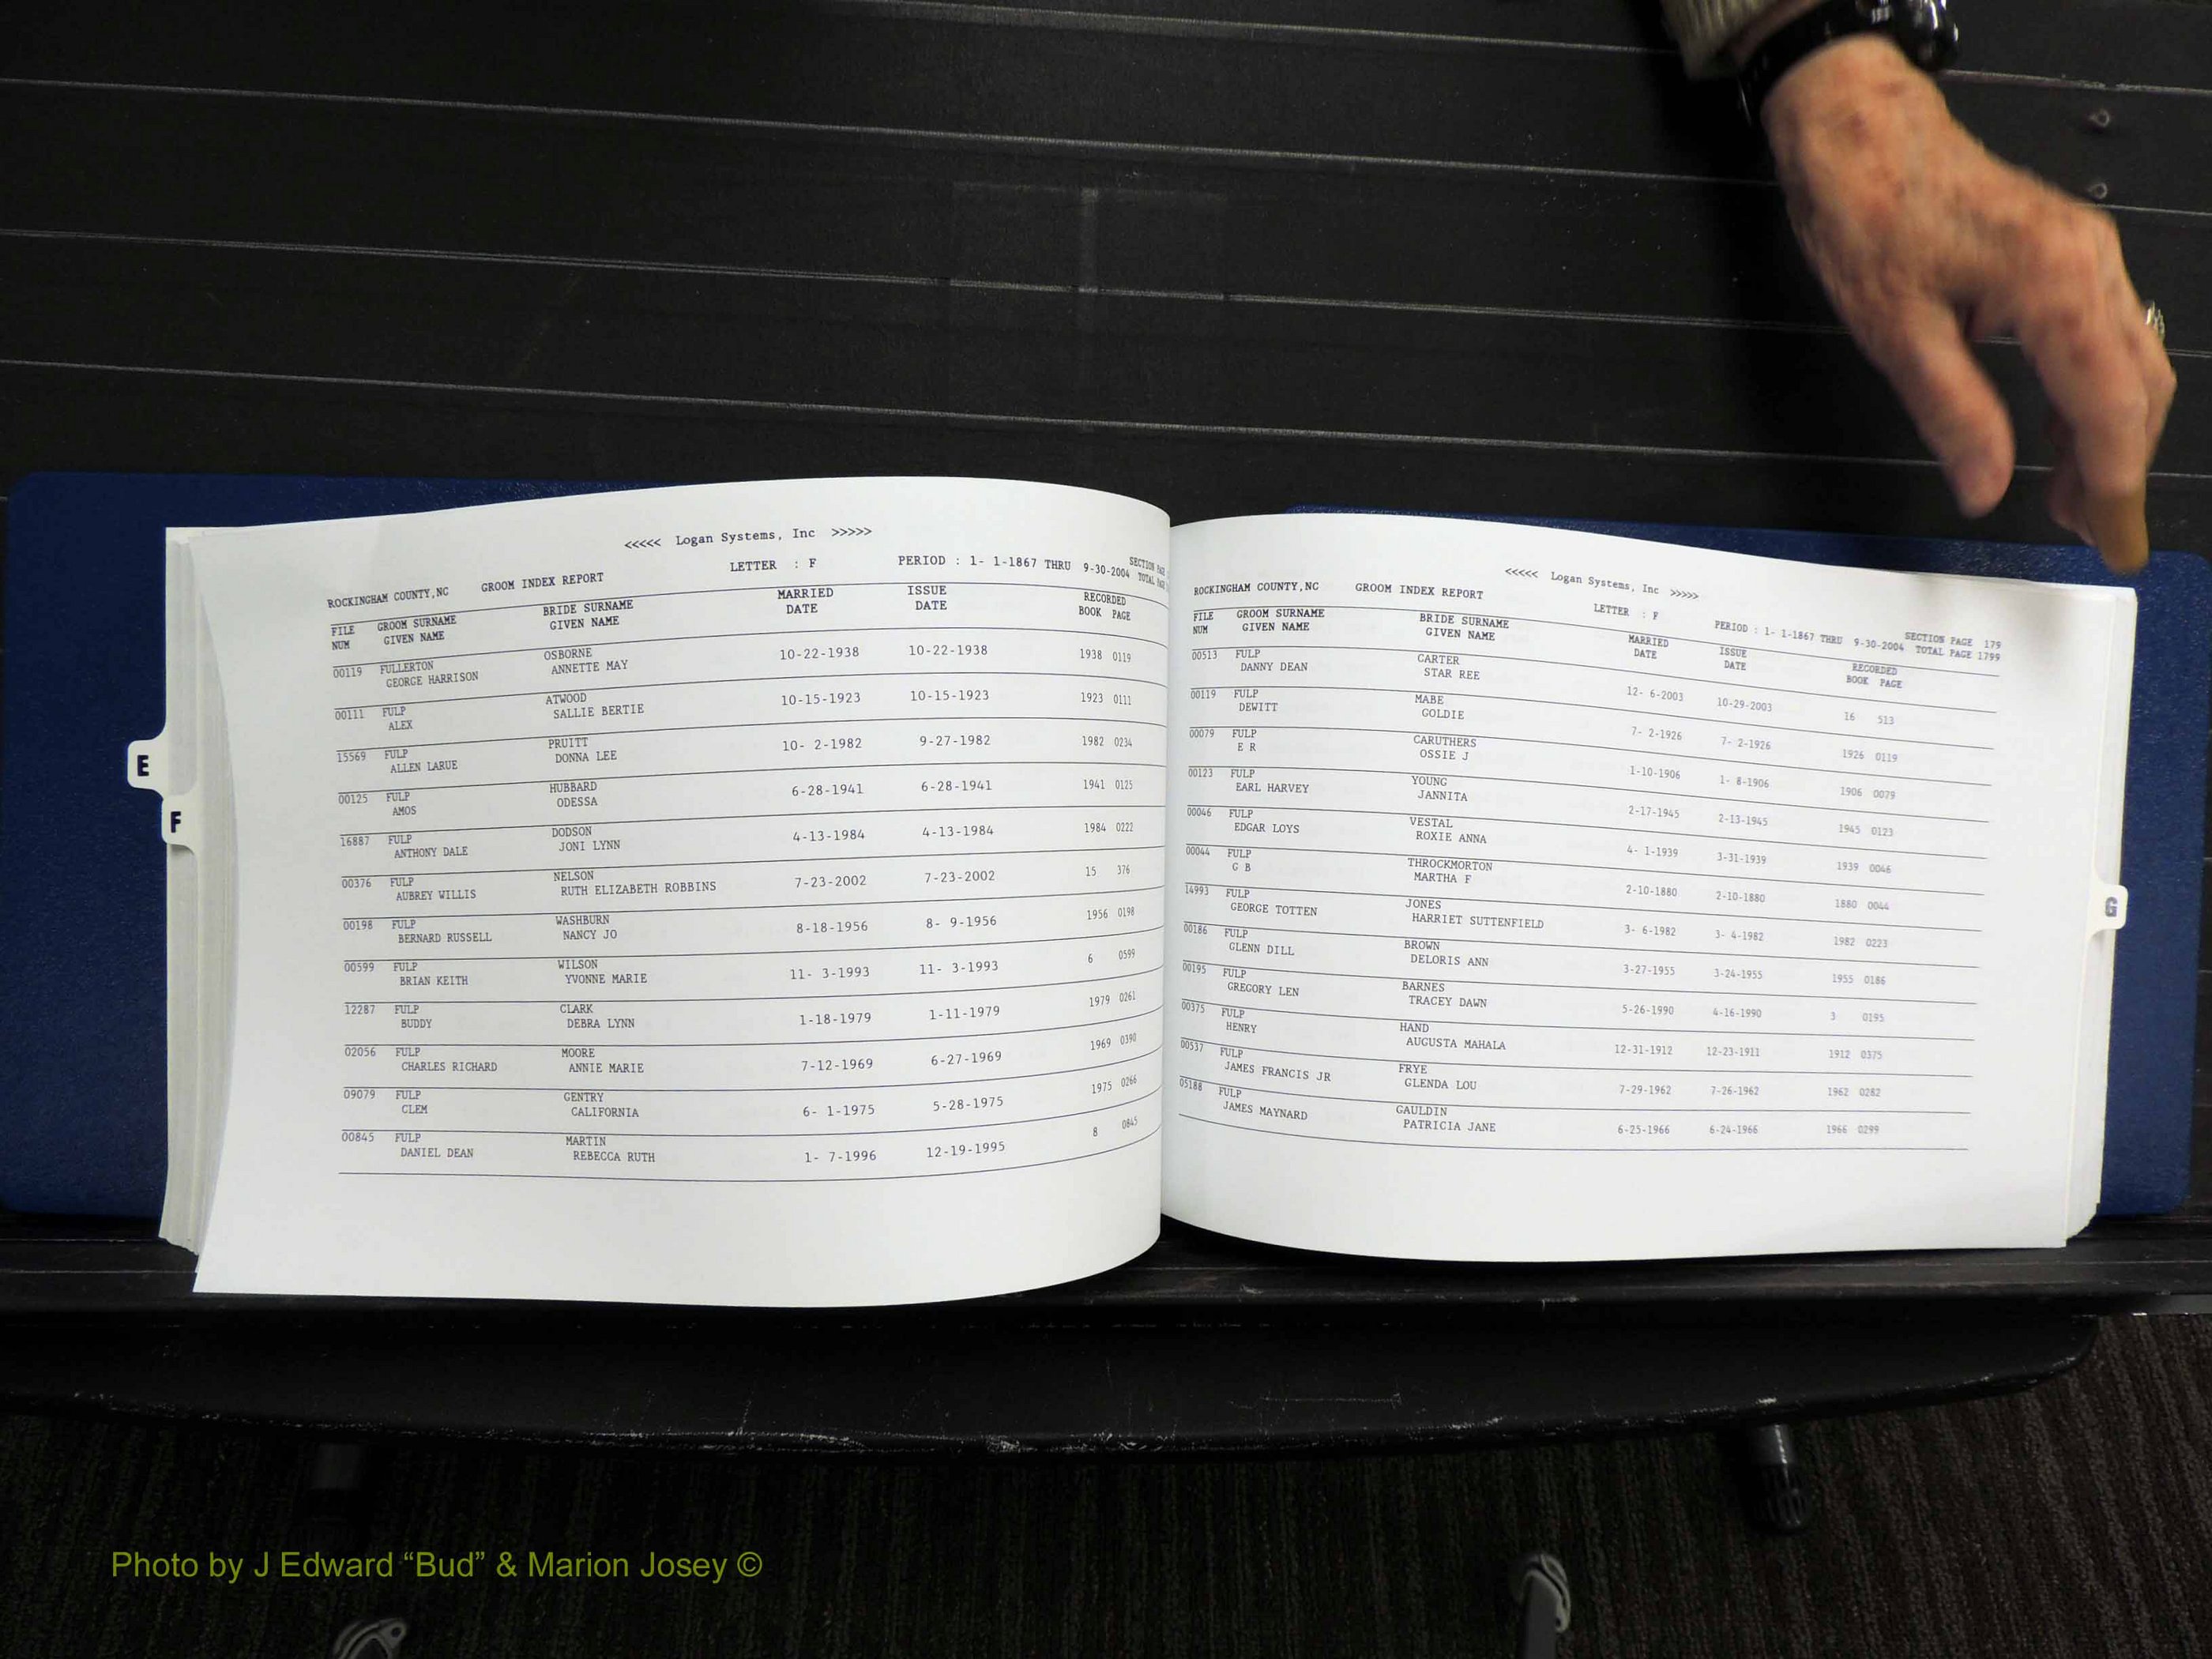 <<<<< Logan Systems, Inc >>>>>
ROCKINGHAM COUNTY,NC GROOM INDEX REPORT LETTER : F PERIOD : 1- 1-1867 THRU 9-30-2004 SECTION PAGE
TOTAL PAGE
FILE GROOM SURNAME BRIDE SURNAME MARRIED ISSUE RECORDED
NUM GIVEN NAME GIVEN NAME DATE DATE BOOK PAGE
00119 FULLERTON OSBORNE 10-22-1938 10-22-1938 1938 0119
GEORGE HARRISON ANNETTE MAY
00111 FULP ATWOOD 10-15-1923 10-15-1923 1923 0111
ALEX SALLIE BERTIE
15569 FULP PRUITT 10- 2-1982 9-27-1982 1982 0234
ALLEN LARUE DONNA LEE
00125 FULP HUBBARD 6-28-1941 6-28-1941 1941 0125
AMOS ODESSA
16887 FULP DODSON 4-13-1984 4-13-1984 1984 0222
ANTHONY DALE JONI LYNN
00376 FULP NELSON 7-23-2002 7-23-2002 15 376
AUBREY WILLIS RUTH ELIZABETH ROBBINS
00198 FULP WASHBURN 8-18-1956 8- 9-1956 1956 0198
BERNARD RUSSELL NANCY JO
00599 FULP WILSON 11- 3-1993 11- 3-1993 6 0599
BRIAN KEITH YVONNE MARIE
12287 FULP CLARK 1-18-1979 1-11-1979 1979 0261
BUDDY DEBRA LYNN
02056 FULP MOORE 7-12-1969 6-27-1969 1969 0390
CHARLES RICHARD ANNIE MARIE
09079 FULP GENTRY 6- 1-1975 5-28-1975 1975 0266
CLEM CALIFORNIA
00845 FULP MARTIN 1- 7-1996 12-19-1995 8 0845
DANIEL DEAN REBECCA RUTH
E
F
<<<<< Logan Systems, Inc >>>>>
ROCKINGHAM COUNTY,NC GROOM INDEX REPORT LETTER : F PERIOD : 1- 1-1867 THRU 9-30-2004 SECTION PAGE 179
TOTAL PAGE 1799
FILE GROOM SURNAME BRIDE SURNAME MARRIED ISSUE RECORDED
NUM GIVEN NAME GIVEN NAME DATE DATE BOOK PAGE
00513 FULP CARTER 12- 6-2003 10-29-2003 16 513
DANNY DEAN STAR REE
00119 FULP MABE 7- 2-1926 7- 2-1926 1926 0119
DEWITT GOLDIE
00079 FULP CARUTHERS 1-10-1906 1- 8-1906 1906 0079
E R OSSIE J
00123 FULP YOUNG 2-17-1945 2-13-1945 1945 0123
EARL HARVEY JANNITA
00046 FULP VESTAL 4- 1-1939 3-31-1939 1939 0046
EDGAR LOYS ROXIE ANNA
00044 FULP THROCKMORTON 2-10-1880 2-10-1880 1880 0044
G B MARTHA F
14993 FULP JONES 3- 6-1982 3- 4-1982 1982 0223
GEORGE TOTTEN HARRIET SUTTENFIELD
00186 FULP BROWN 3-27-1955 3-24-1955 1955 0186
GLENN DILL DELORIS ANN
00195 FULP BARNES 5-26-1990 4-16-1990 3 0195
GREGORY LEN TRACEY DAWN
00375 FULP HAND 12-31-1912 12-23-1911 1912 0375
HENRY AUGUSTA MAHALA
00537 FULP FRYE 7-29-1962 7-26-1962 1962 0282
JAMES FRANCIS JR GLENDA LOU
05188 FULP GAULDIN 6-25-1966 6-24-1966 1966 0299
JAMES MAYNARD PATRICIA JANE
G
Photo by J Edward “Bud” & Marion Josey ©